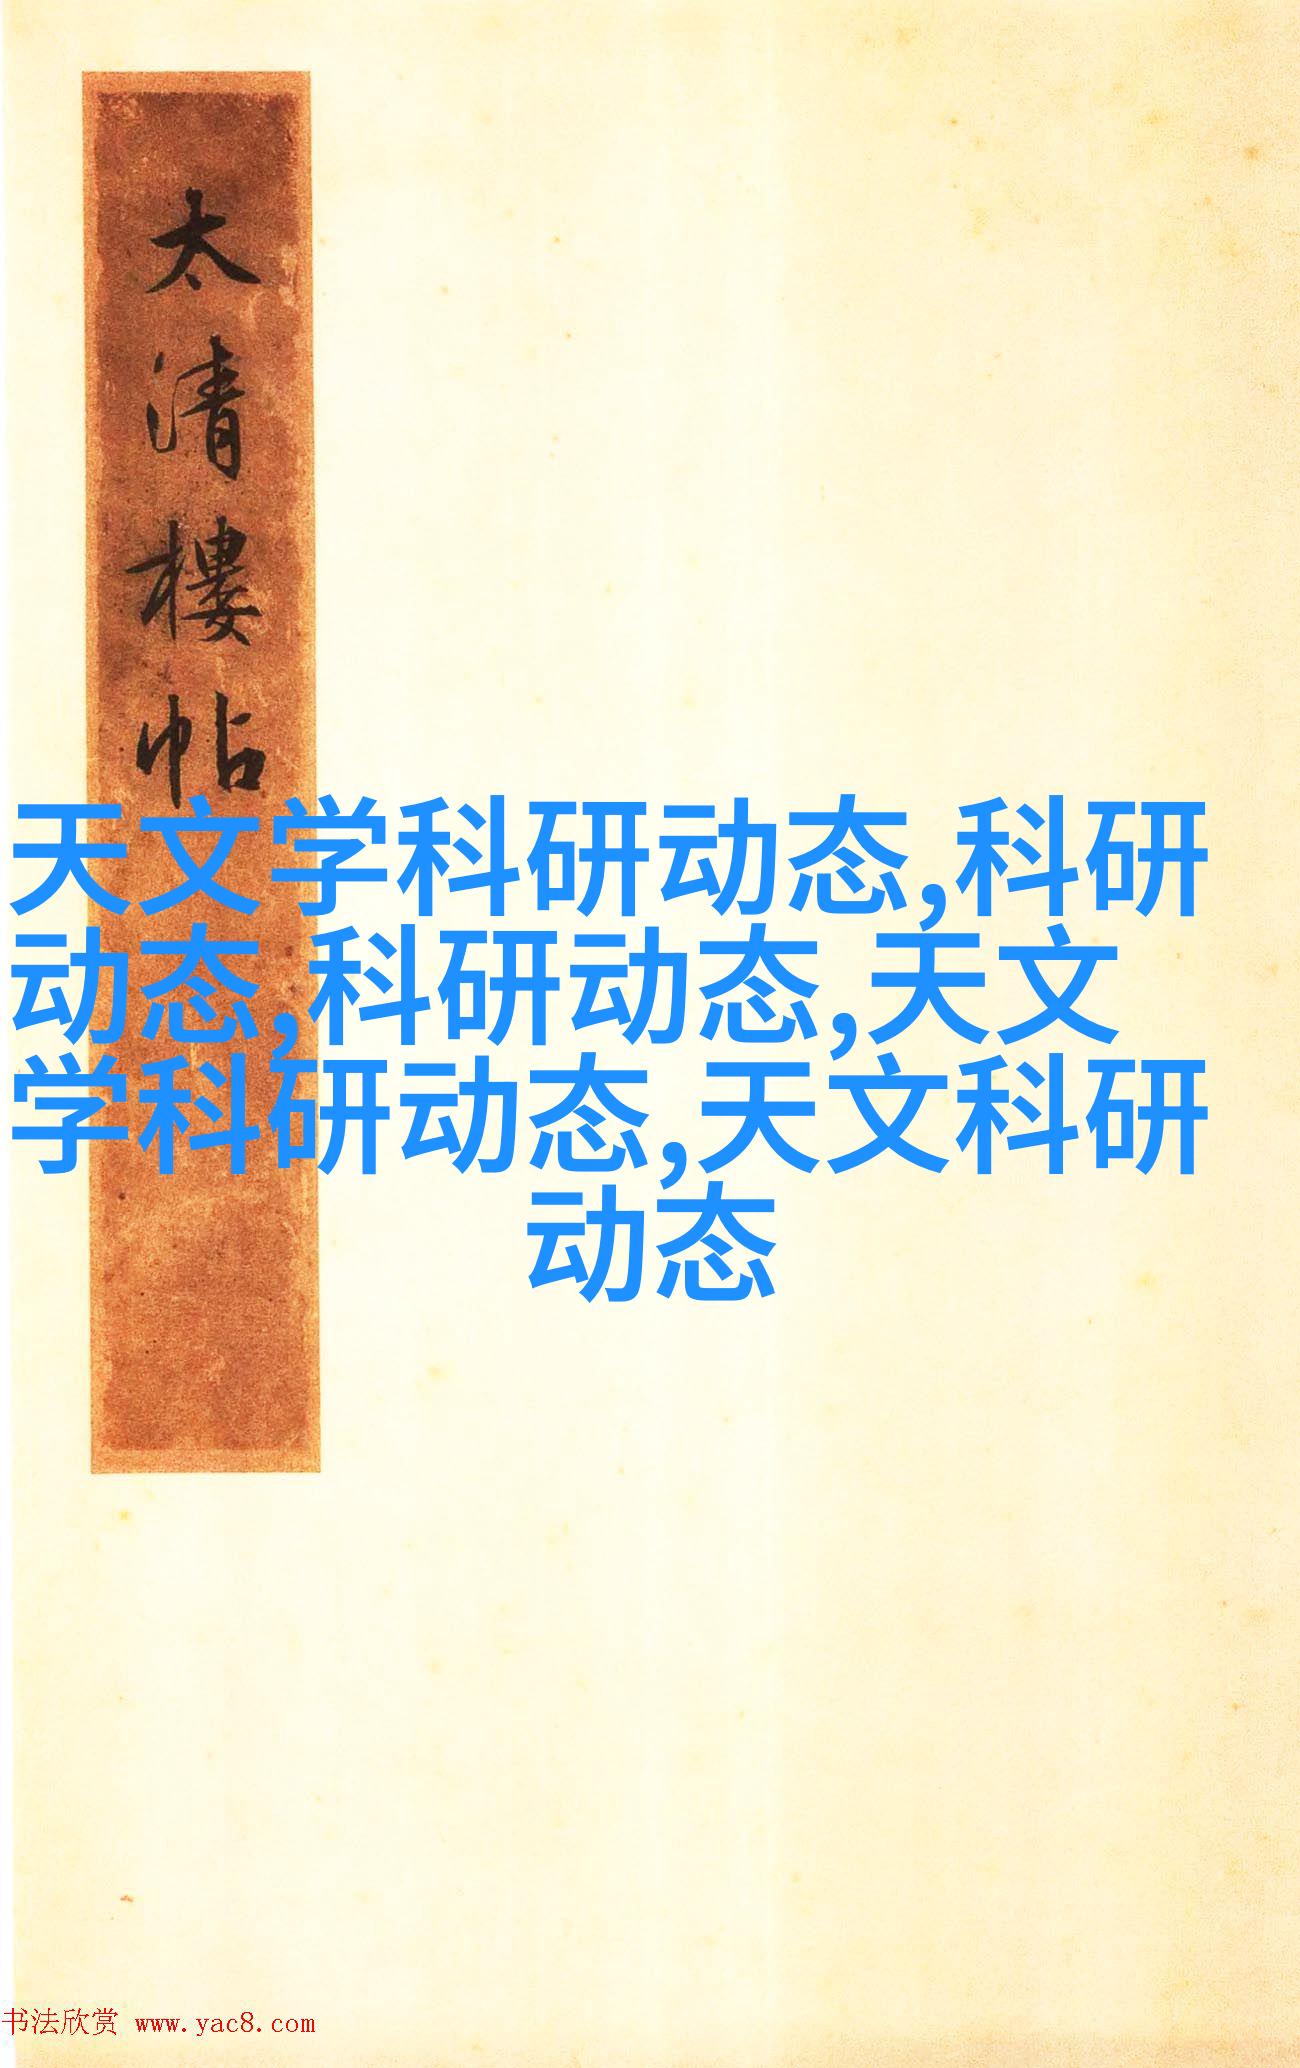 太清樓帖
天文学科研动态,科研
动态,科研动态,天文
学科研动态,天文科研
动态
书法欣赏 www.yac8.com